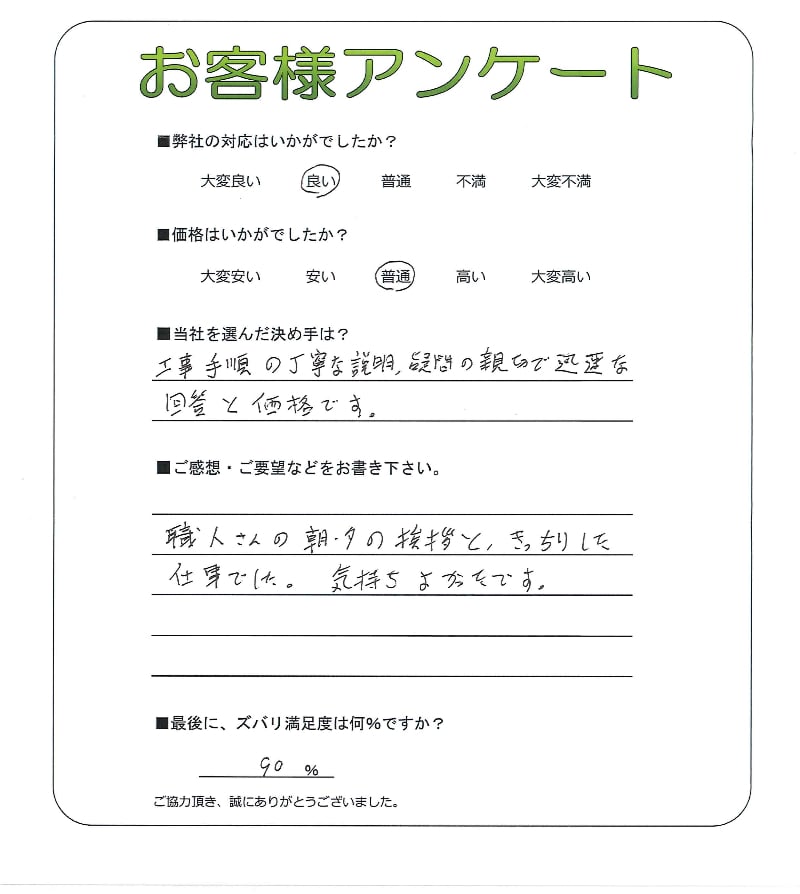 お客様アンケート
■弊社の対応はいかがでしたか？
大変良い 良い 普通 不満 大変不満
■価格はいかがでしたか？
大変安い 安い 普通 高い 大変高い
■当社を選んだ決め手は？
工事手順の丁寧な説明、疑問の親切で迅速な
回答と価格です。
■ご感想・ご要望などをお書き下さい。
職人さんの朝・夕の挨拶と、きっちりした
仕事でした。 気持ちよかったです。
■最後に、ズバリ満足度は何％ですか？
90 ％
ご協力頂き、誠にありがとうございました。